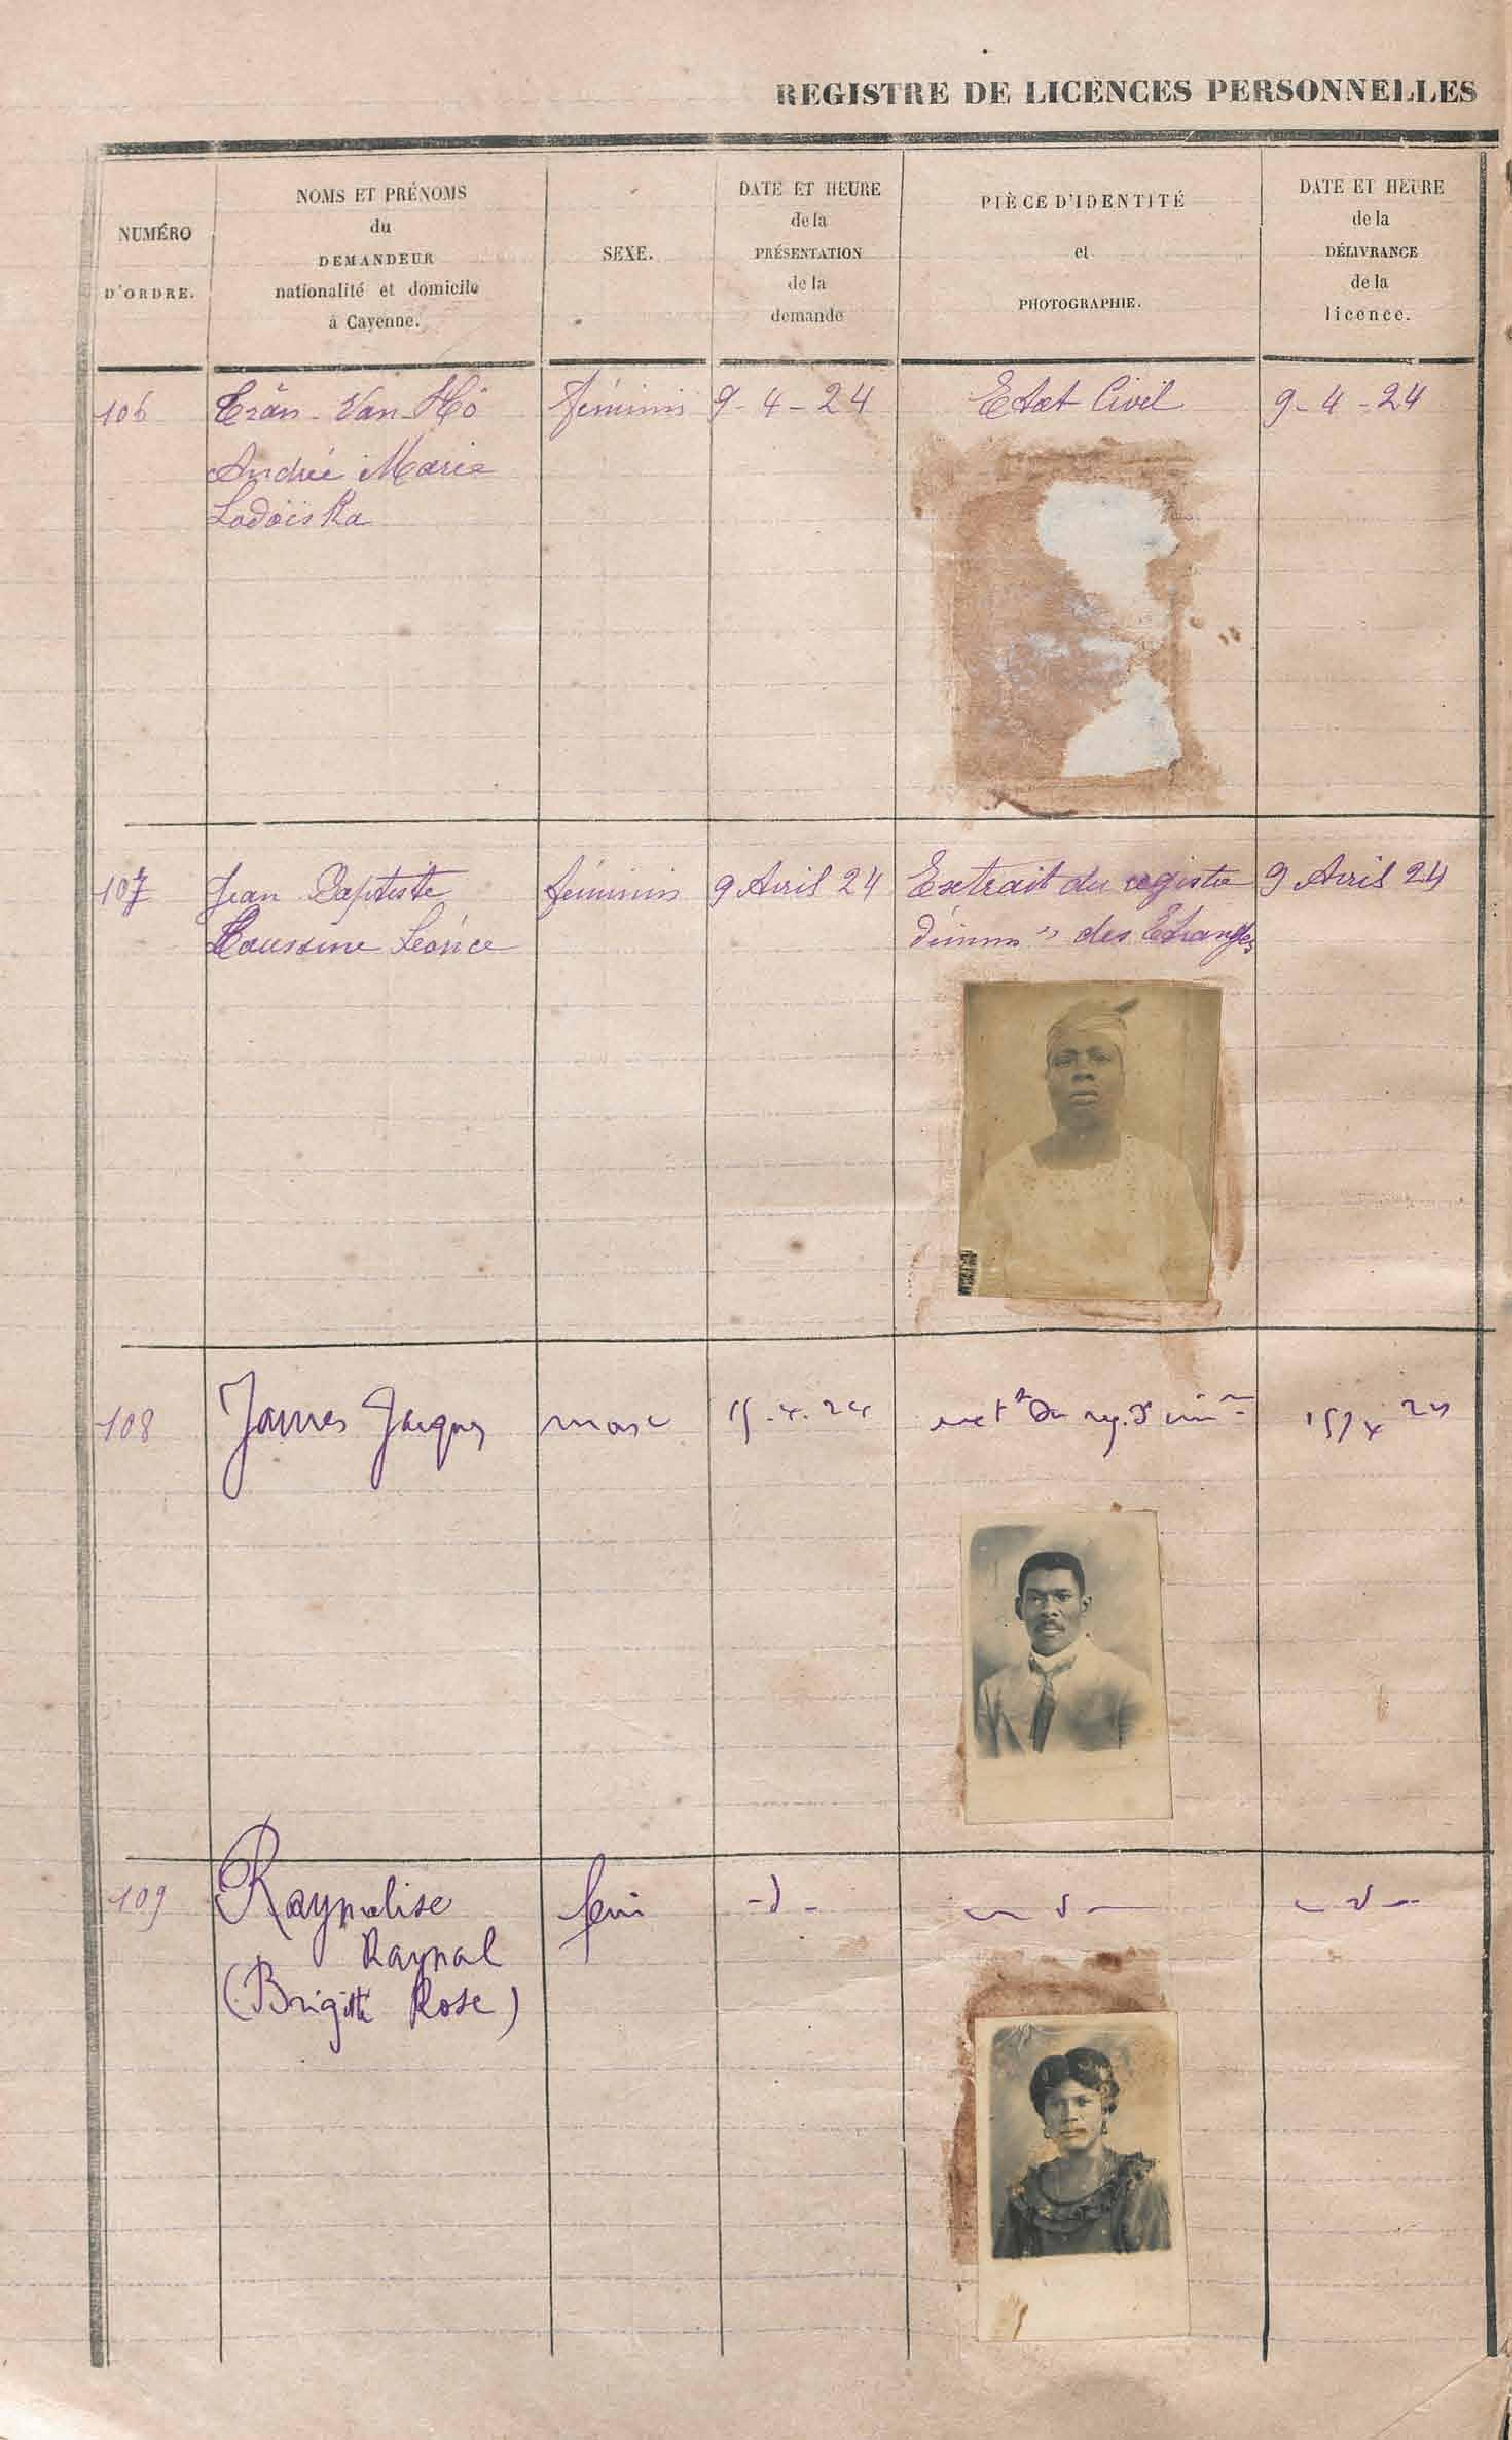 REGISTRE DE LICENCES PERSONNELLES
NUMÉRO
D'ORDRE.
NOMS ET PRÉNOMS
du
DEMANDEUR
nationalité et domicile
à Cayenne.
SEXE.
DATE ET HEURE
de la
PRÉSENTATION
de la
demande
PIÈCE D'IDENTITÉ
et
PHOTOGRAPHIE.
DATE ET HEURE
de la
DÉLIVRANCE
de la
licence.
106
Trân-Van-Hô
Andrée Marie
Lodoïska
féminin
9-4-24
Etat Civil
9-4-24
107
Jean Baptiste
Léonce
féminin
9 Avril 24
Extrait du registre
d'imm'' des Etrangers
9 Avril 24
108
James Jacques
masc
15.4.24
du reg. d'imm
15/4 24
109
Raynalise
Raynal
(Brigitte Rose)
fem
-d-
- d -
- d -